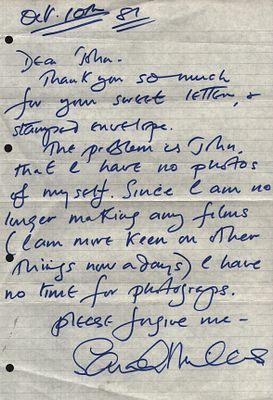 Oct. 10th 81
Dear John.
Thank you so much
for your sweet letter, &
stamped envelope.
The problem is John,
that I have no photos
of myself. Since I am no
longer making any films
(I am more keen on other
things now a days) I have
no time for photograps.
please forgive me –